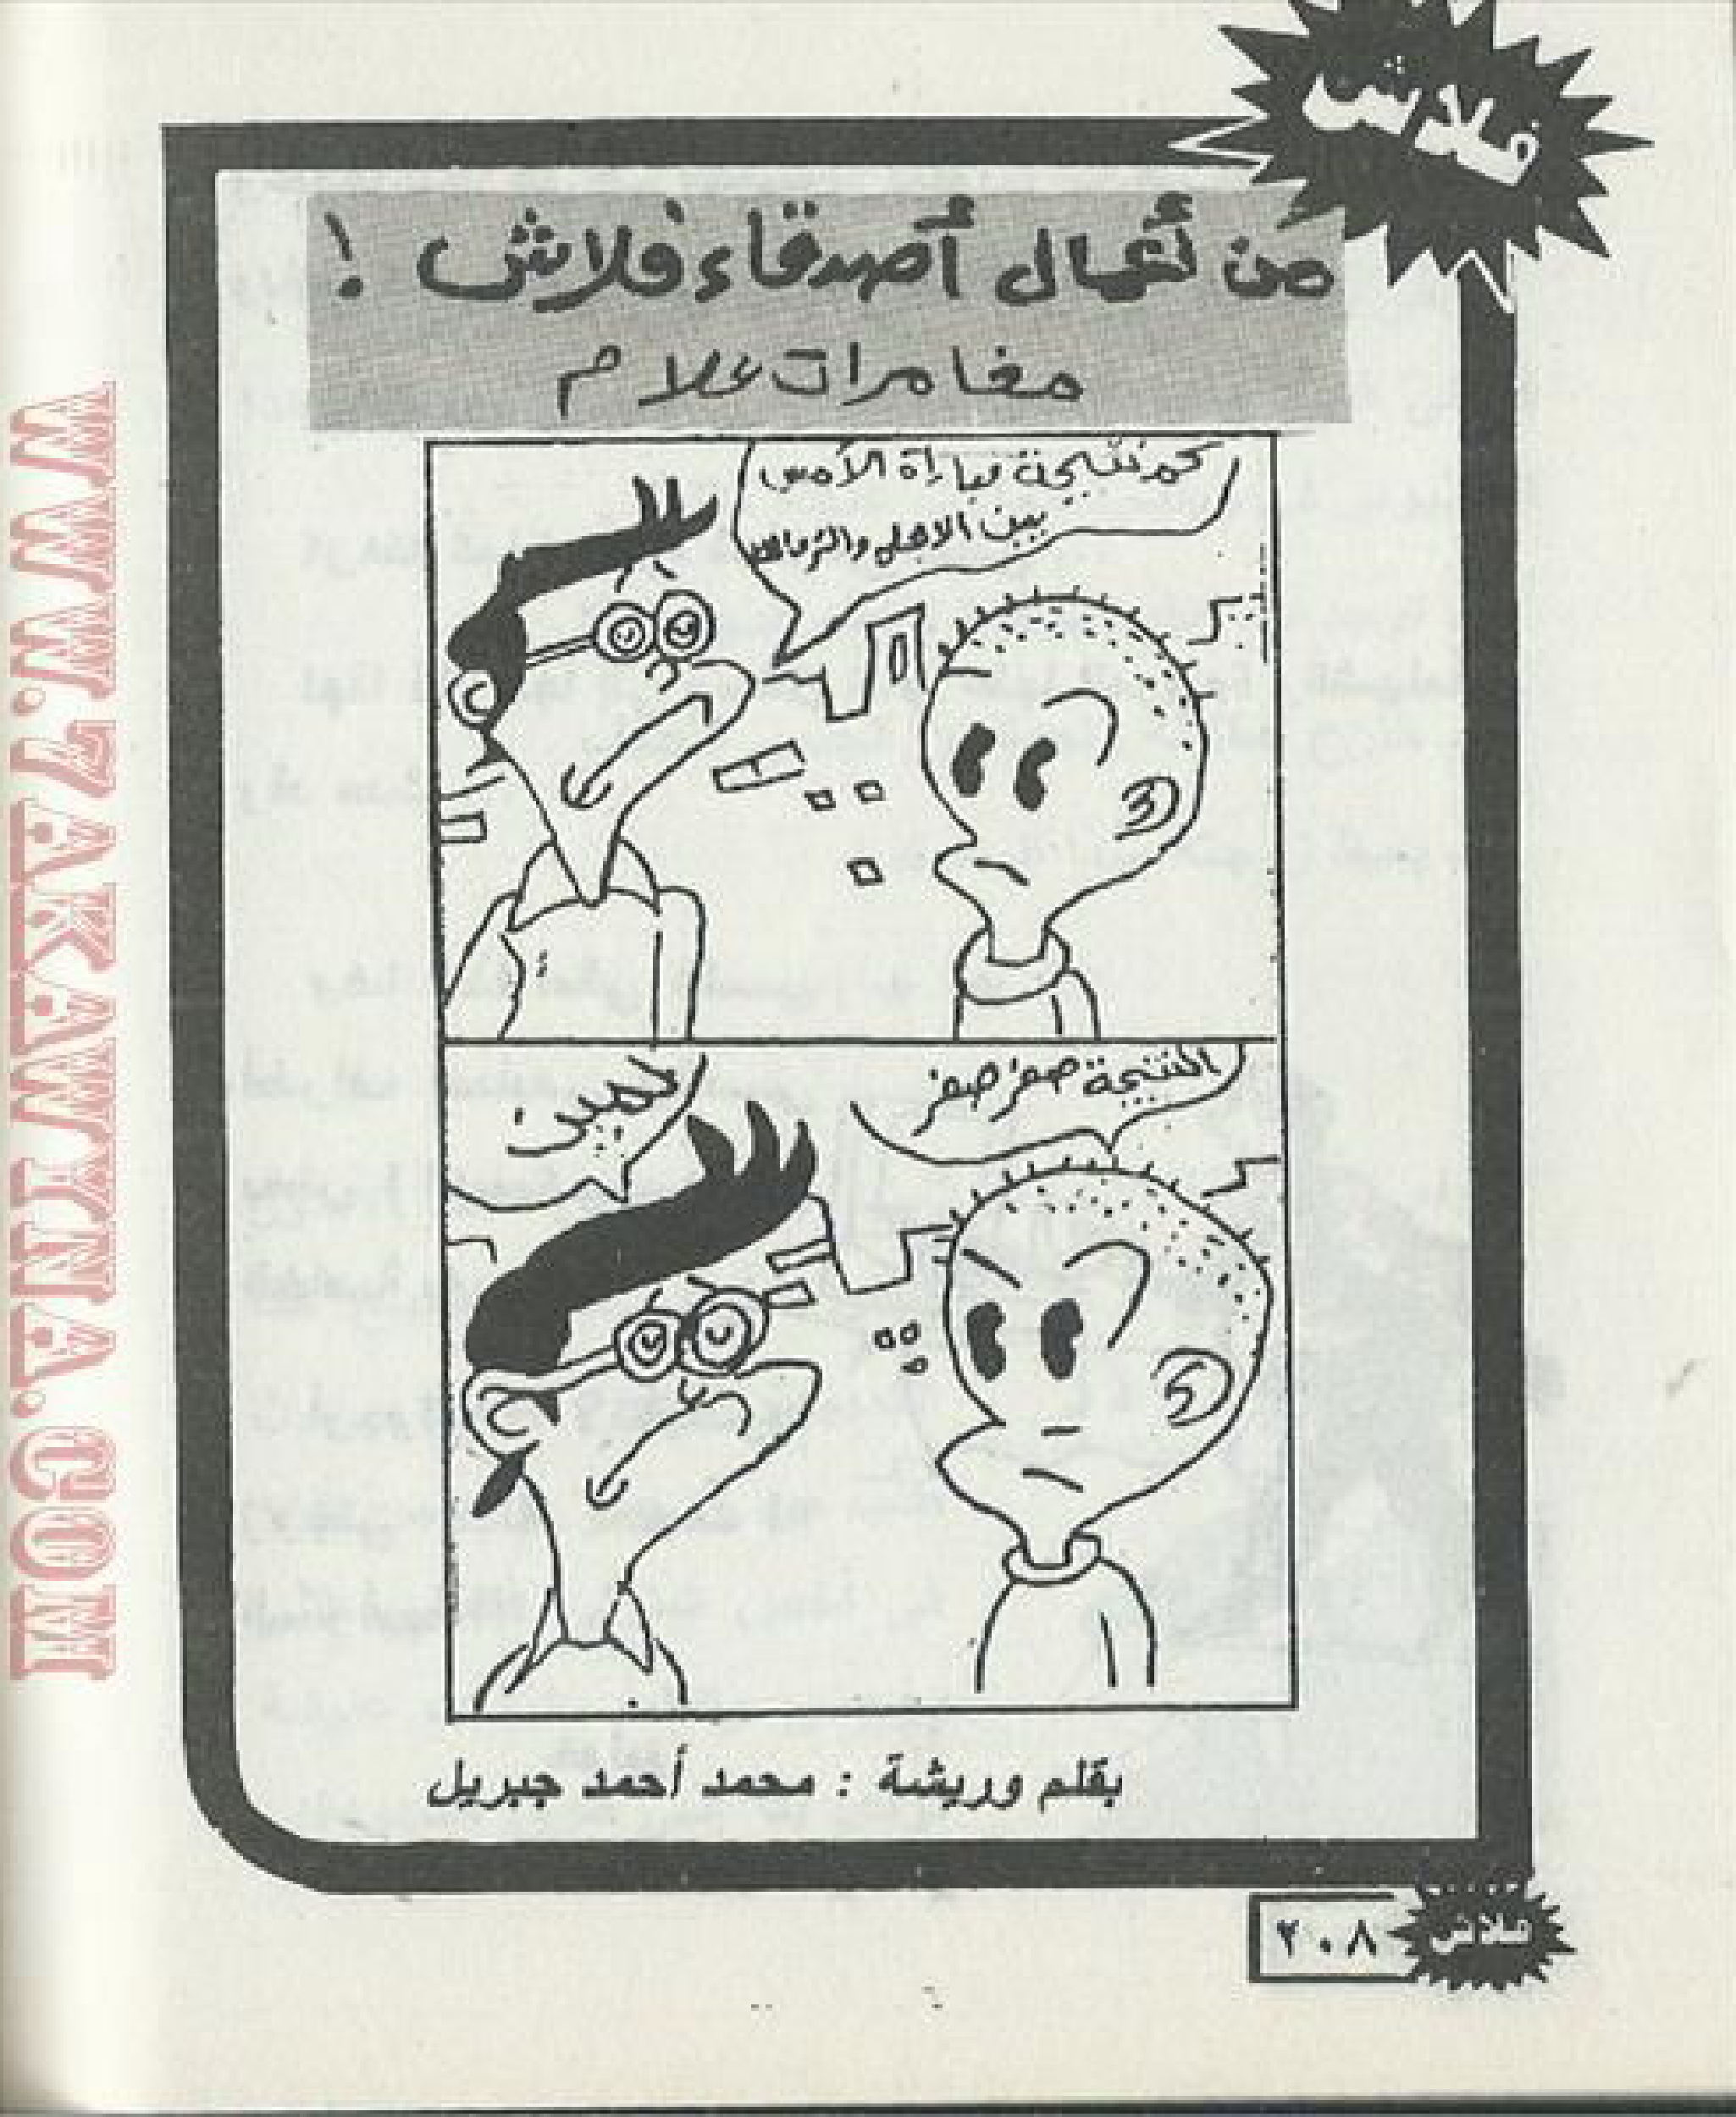 فلاش
من أعمال أصدقاء فلاش !
مغامرات علام
كم نتيجة مباراة الأمس
بين الاهلى والزمالك
النتيجة صفر صفر
لمين
بقلم وريشة : محمد أحمد جبريل
٢٠٨
فلاش
WWW.7AKAWITNA.COM